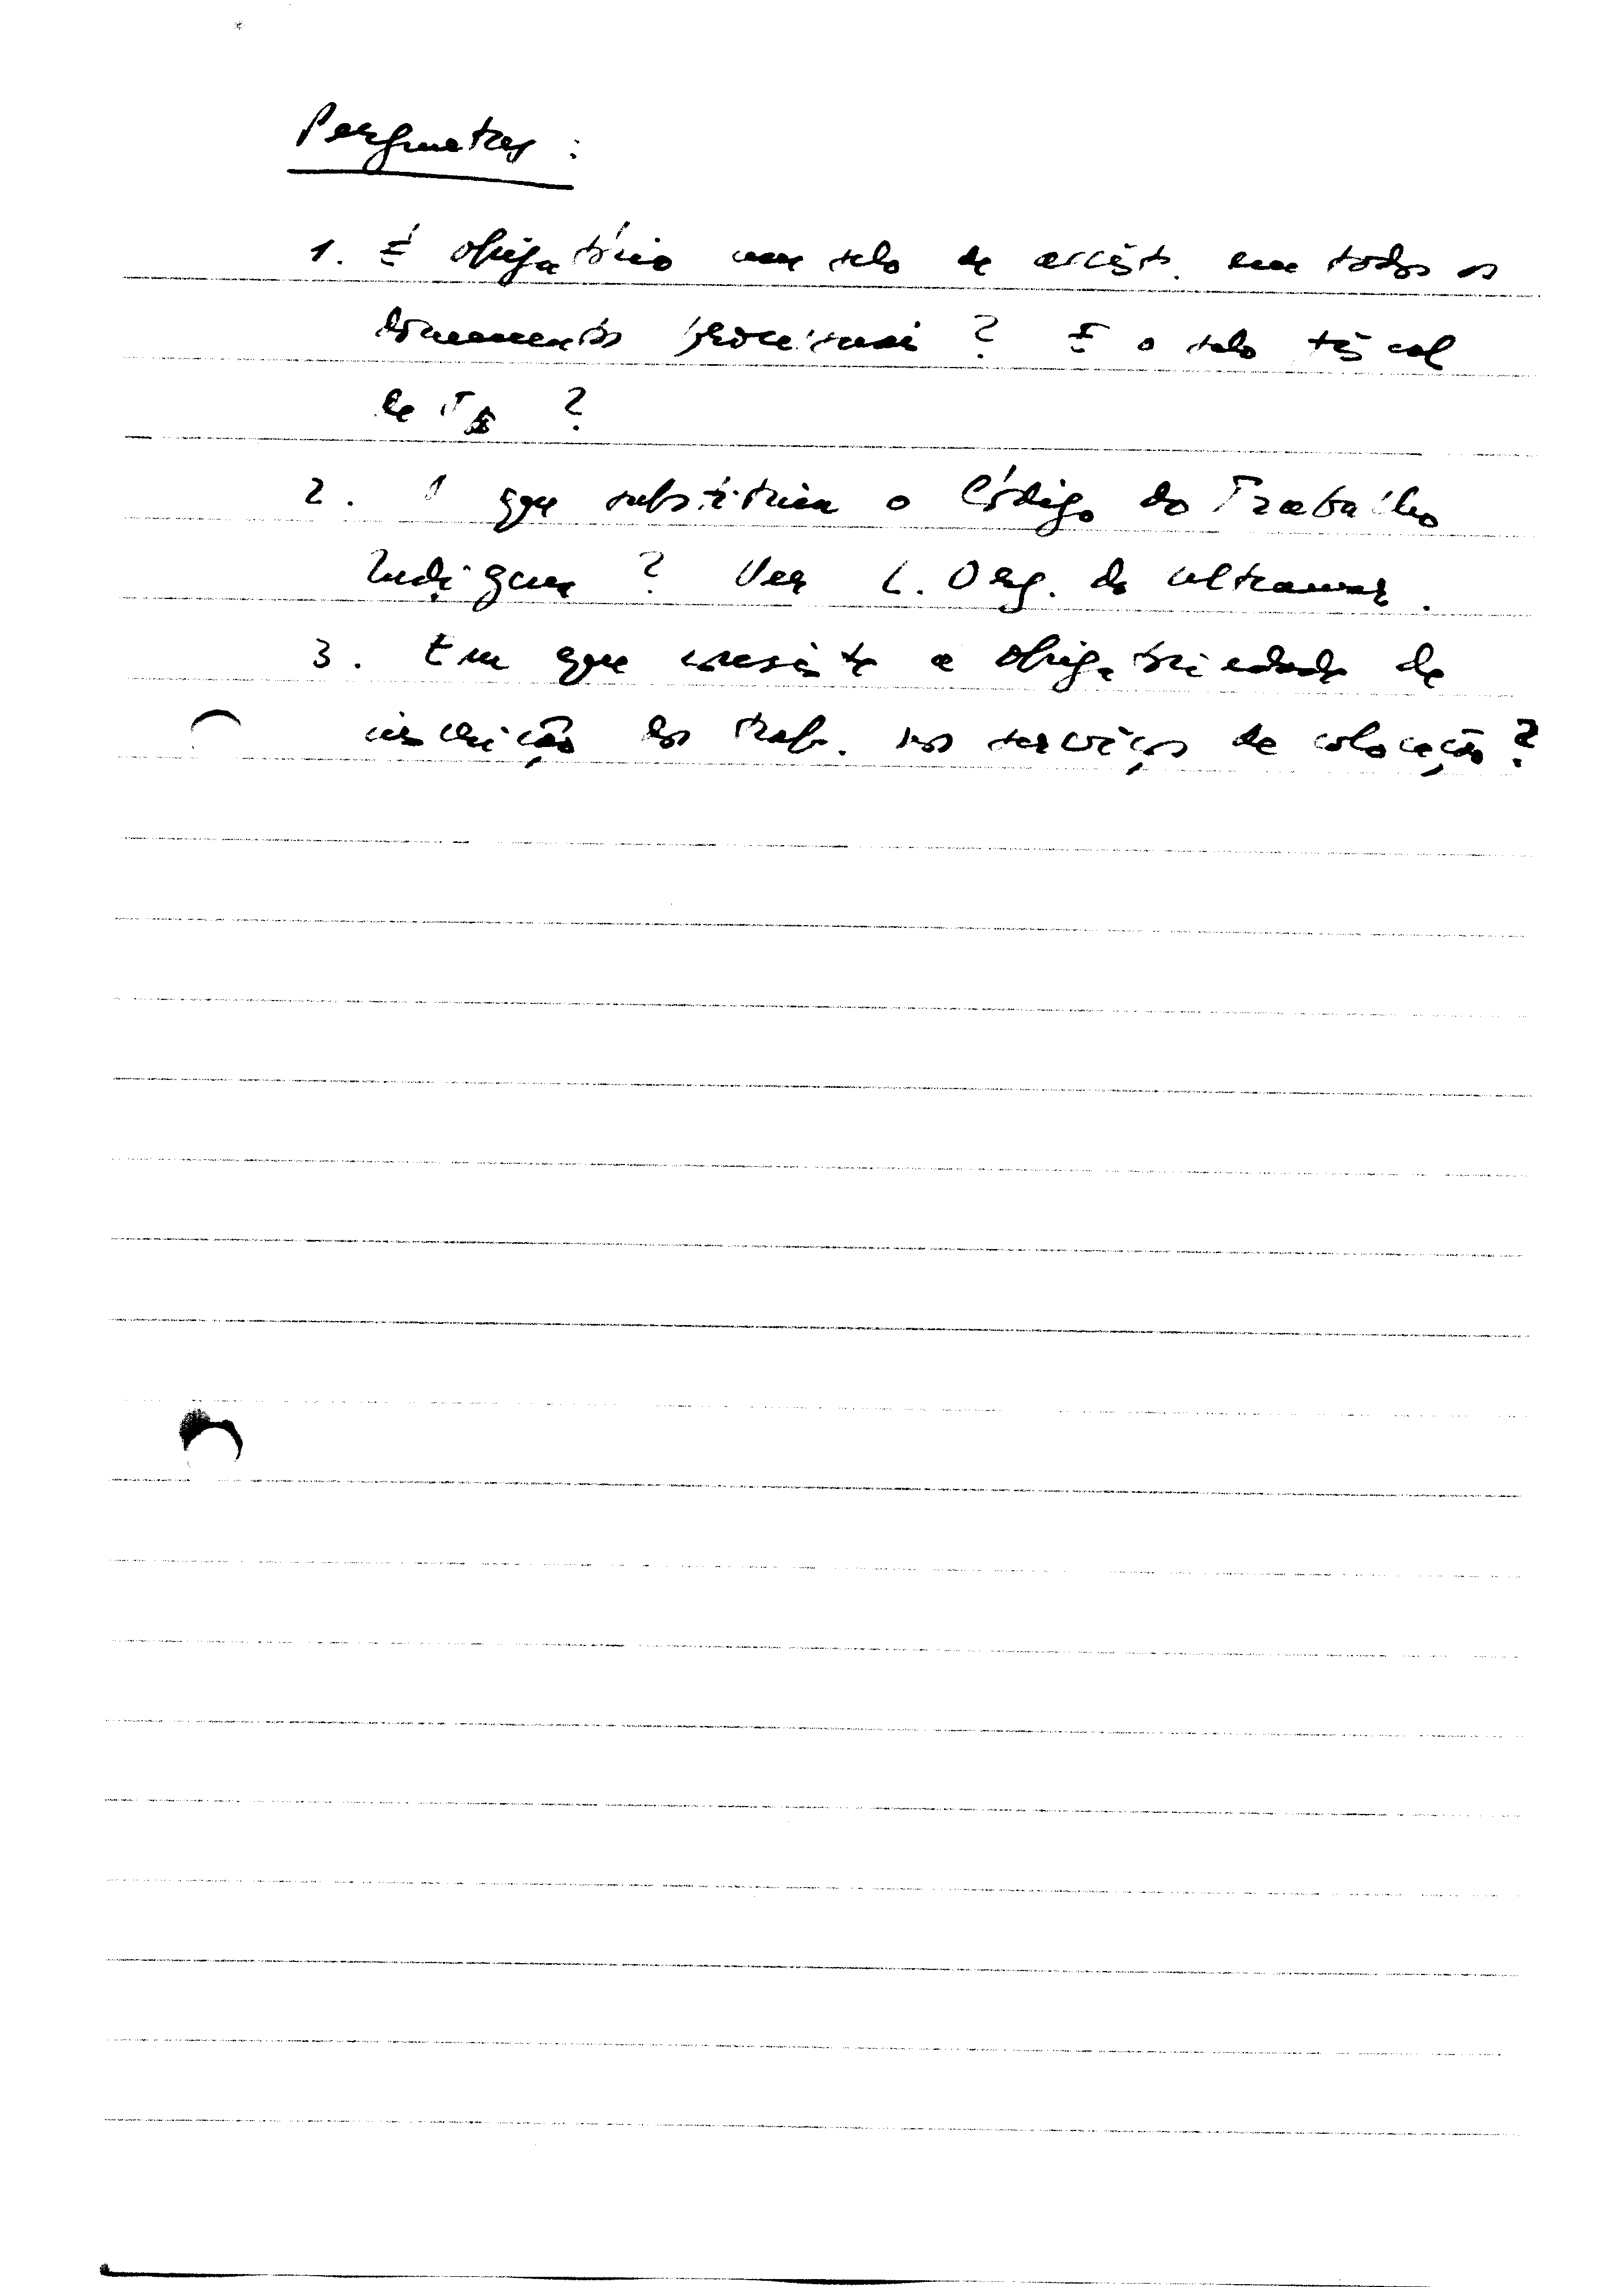 Perguntas :
1. É obrigatório um selo de em todos os
documentos processuais ? E o selo fiscal
de ?
2. O que substituiu o Código do Trabalho
Indígena ? Ver L. Org. do Ultramar.
3. Em que consiste a obrigatoriedade de
inscrição dos trab. nos serviços de colocação ?